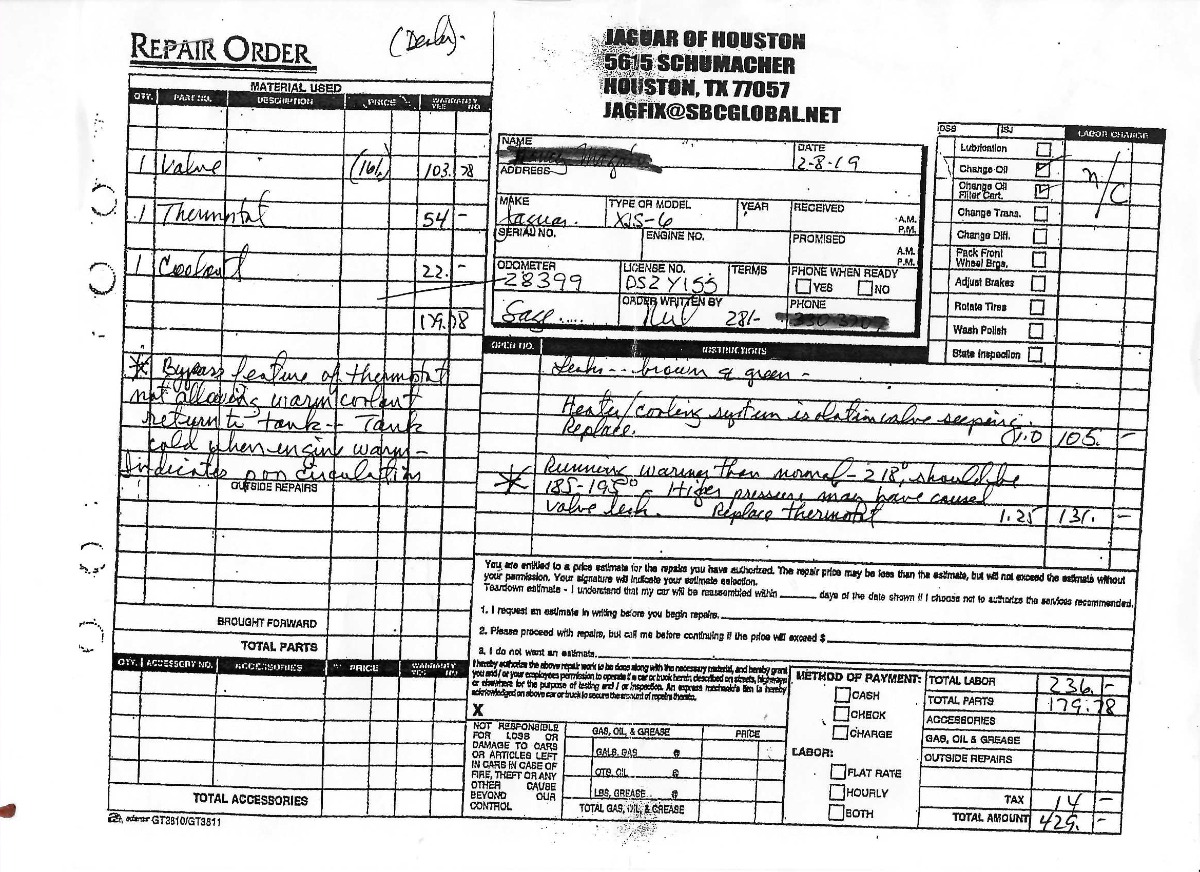 REPAIR ORDER
(Dealer).
JAGUAR OF HOUSTON
5615 SCHUMACHER
HOUSTON, TX 77057
JAGFIX@SBCGLOBAL.NET
MATERIAL USED
QTY. PART NO. DESCRIPTION PRICE WARRANTY YES NO
1 Valve (166) 103.78
1 Thermostat 54 -
1 Coolant 22. -
179.78
* Bypass feature of thermostat
not allowing warm coolant
return to tank -- Tank
cold when engine warm -
Indicates non circulation
OUTSIDE REPAIRS
BROUGHT FORWARD
TOTAL PARTS
QTY. ACCESSORY NO. ACCESSORIES PRICE WARRANTY YES NO
TOTAL ACCESSORIES
GT3810/GT3811
NAME
DATE
2-8-19
ADDRESS
MAKE TYPE OR MODEL YEAR RECEIVED A.M. P.M.
Jaguar XJS-6
SERIAL NO. ENGINE NO. PROMISED A.M. P.M.
ODOMETER LICENSE NO. TERMS PHONE WHEN READY
28399 DSZ Y155 YES NO
ORDER WRITTEN BY PHONE
281-
DSB ISJ LABOR CHARGE
Lubrication
Change Oil N/C
Change Oil Filter Cart.
Change Trans.
Change Diff.
Pack Front Wheel Brgs.
Adjust Brakes
Rotate Tires
Wash Polish
State Inspection
OPER NO. INSTRUCTIONS
Leaks -- brown & green -
Heater/cooling system isolation valve seeping.
Replace. 1.0 105. -
Running waring than normal - 218°, should be
* 185-195° - Higer pressure may have caused
valve leak. Replace thermostat 1.25 131. -
You are entitled to a price estimate for the repairs you have authorized. The repair price may be less than the estimate, but will not exceed the estimate without
your permission. Your signature will indicate your estimate selection.
Teardown estimate - I understand that my car will be reassembled within ______ days of the date shown if I choose not to authorize the services recommended.
1. I request an estimate in writing before you begin repairs.
2. Please proceed with repairs, but call me before continuing if the price will exceed $
3. I do not want an estimate.
I hereby authorize the above repair work to be done along with the necessary material, and hereby grant
you and / or your employees permission to operate the car or truck herein described on streets, highways
or elsewhere for the purpose of testing and / or inspection. An express mechanic's lien is hereby
acknowledged on above car or truck to secure the amount of repairs thereto.
X
NOT RESPONSIBLE
FOR LOSS OR
DAMAGE TO CARS
OR ARTICLES LEFT
IN CARS IN CASE OF
FIRE, THEFT OR ANY
OTHER CAUSE
BEYOND OUR
CONTROL
GAS, OIL, & GREASE PRICE
GALS. GAS @
QTS. OIL @
LBS. GREASE @
TOTAL GAS, OIL, & GREASE
METHOD OF PAYMENT:
CASH
CHECK
CHARGE
LABOR:
FLAT RATE
HOURLY
BOTH
TOTAL LABOR 236. -
TOTAL PARTS 179.78
ACCESSORIES
GAS, OIL & GREASE
OUTSIDE REPAIRS
TAX 14 -
TOTAL AMOUNT 429. -